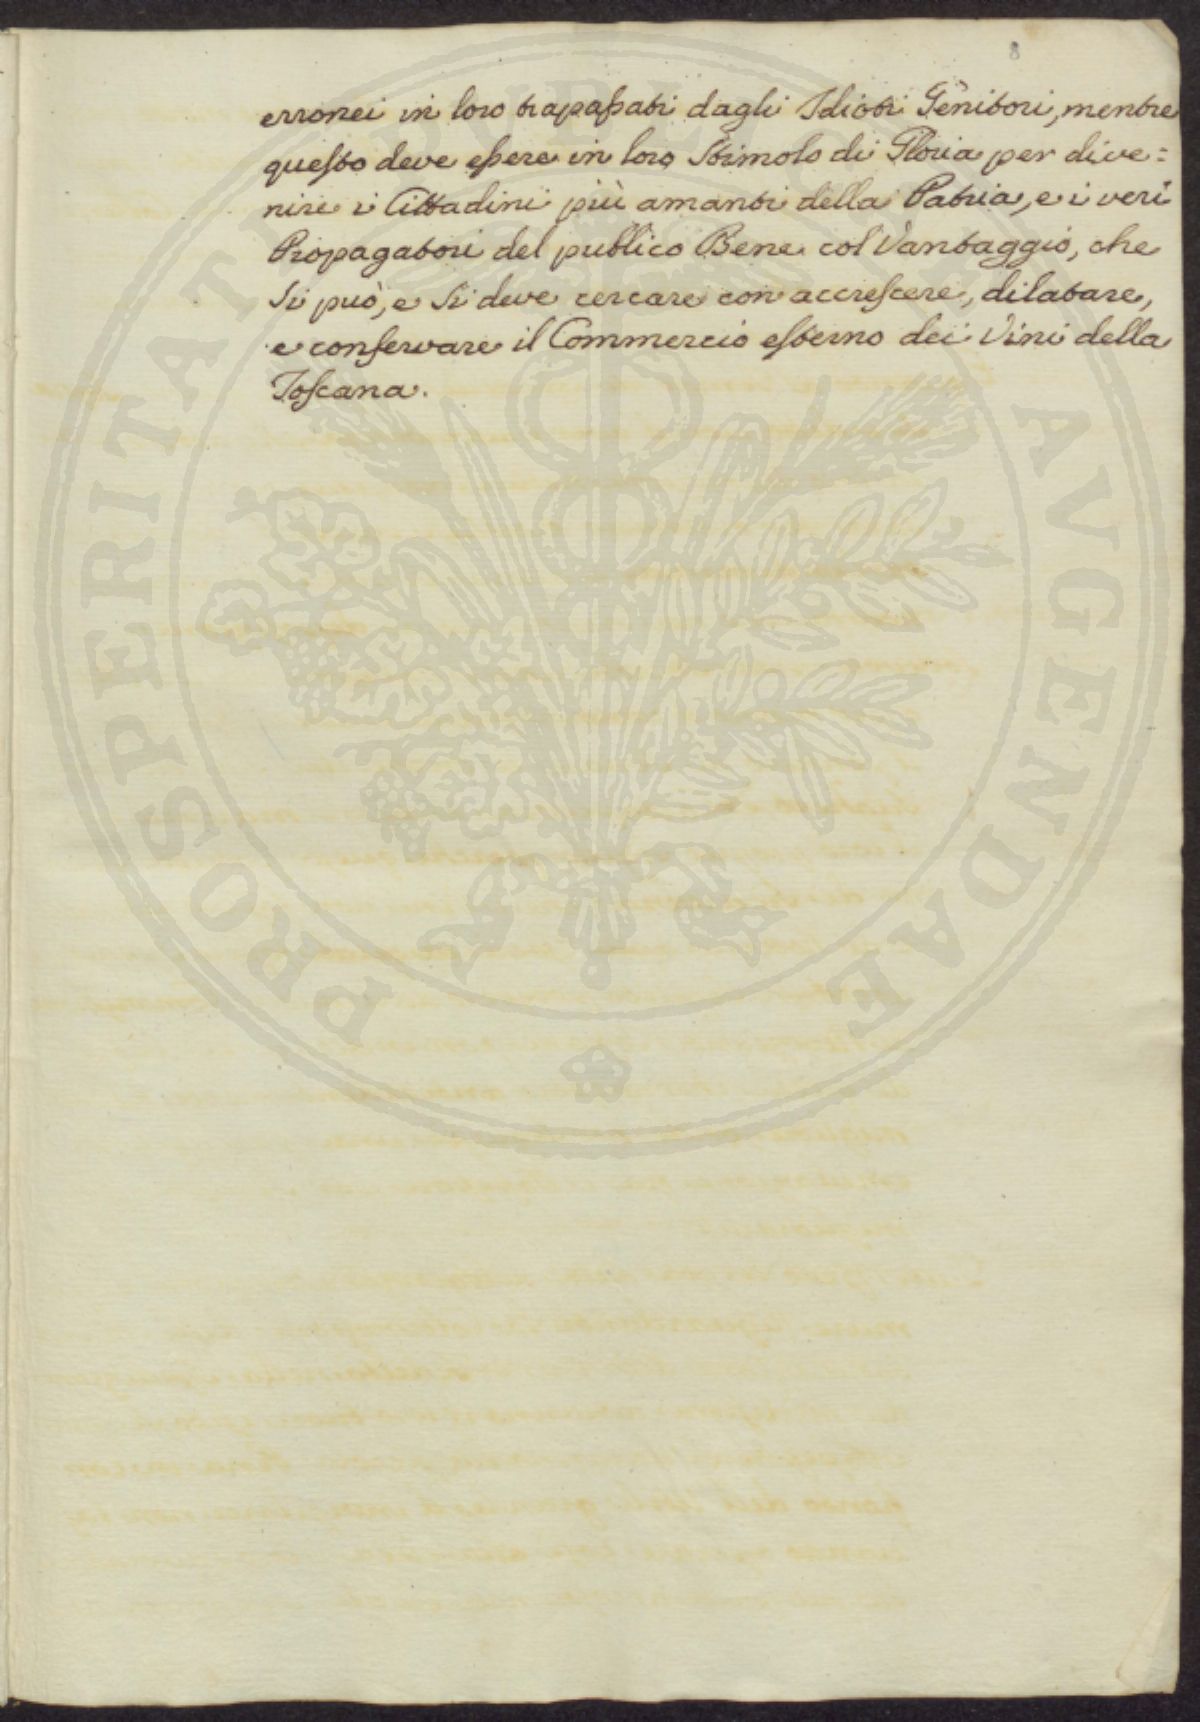 8
erronei in loro trapaſsati dagli Idioti Genitori, mentre
queſto deve eſsere in loro Stimolo di Gloria per dive=
nire i Cittadini più amanti della Patria, e i veri
Propagatori del publico Bene col Vantaggio, che
Si può, e Si deve cercare con accreſcere, dilatare,
e conſervare il Commercio eſterno dei Vini della
Toſcana.
PROSPERITATI PUBLICAE AVGENDAE